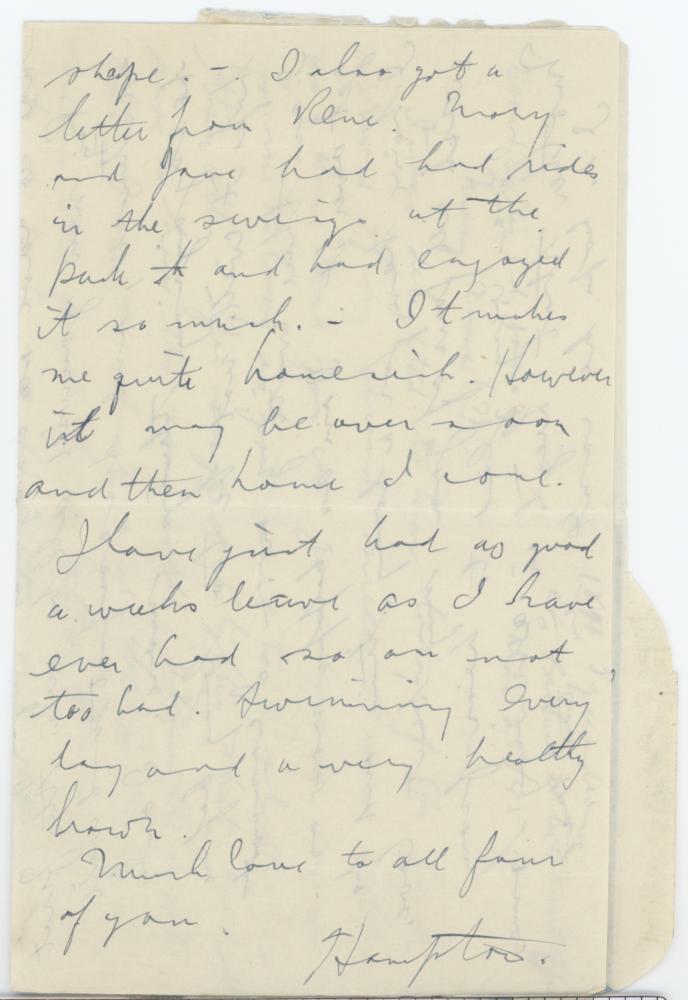 shape. - . I also got a
letter from Rene. Mary
and Jane had had rides
in the swings at the
park and had enjoyed
it so much. - I t makes
me quite homesick. However
it may be over soon
and then home I come.
I have just had as good
a weeks leave as I have
ever had so am not
too bad. Swimming every
day and a very healthy
brown.
Much love to all four
of you.
Hampton.